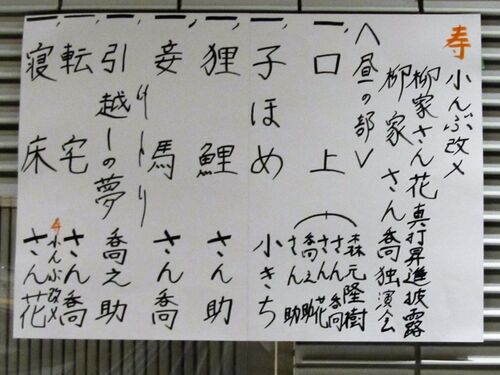 寿 小んぶ改メ
柳家さん花真打昇進披露
柳家さん喬独演会
＜昼の部＞
一、口上
森元隆樹
さん喬
さん花
喬之助
さん助
一、子ほめ 小きち
一、狸鯉 さん助
一、妾馬 さん喬
一、引越しの夢 喬之助
一、転宅 さん喬
寿 小んぶ改メ
一、寝床 さん花